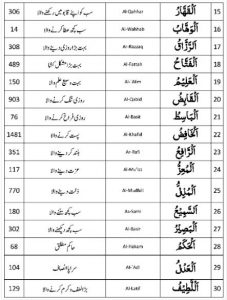 306 سب کو اپنے قابو میں رکھنے والا Al-Qahhar اَلْقَهَّارُ 15
14 سب کچھ عطا کرنے والا Al-Wahhab اَلْوَهَّابُ 16
308 بہت بڑا روزی دینے والا Ar-Razzaq اَلرَّزَّاقُ 17
489 بہت بڑا مشکل کشا Al-Fattah اَلْفَتَّاحُ 18
150 بہت وسیع علم والا Al-'Alim اَلْعَلِيْمُ 19
903 روزی تنگ کرنے والا Al-Qabid اَلْقَابِضُ 20
76 روزی فراخ کرنے والا Al-Basit اَلْبَاسِطُ 21
1481 پست کرنے والا Al-Khafid اَلْخَافِضُ 22
351 بلند کرنے والا Ar-Rafi اَلرَّافِعُ 23
117 عزت دینے والا Al-Mu'izz اَلْمُعِزُّ 24
770 ذلت دینے والا Al-Mudhill اَلْمُذِلُّ 25
180 سب کچھ سننے والا As-Sami اَلسَّمِيْعُ 26
302 سب کچھ دیکھنے والا Al-Basir اَلْبَصِيْرُ 27
68 حاکم مطلق Al-Hakam اَلْحَكَمُ 28
104 سراپا انصاف Al-'Adl اَلْعَدْلُ 29
129 بڑا لطف و کرم کرنے والا Al-Latif اَللَّطِيْفُ 30